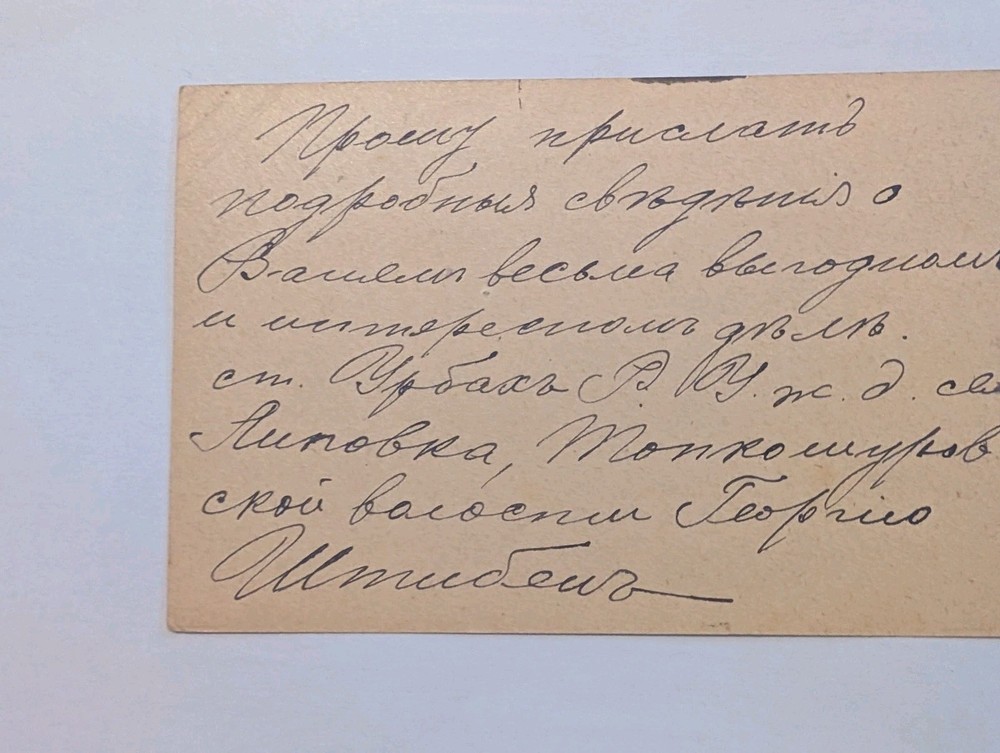 Прошу прислать
подробныя свѣдѣнія о
Вашемъ весьма выгодномъ
и интересномъ дѣлѣ.
ст. Урбахъ Р. У. ж. д. се
Липовка, Топкошуров
ской волости Георгію
Штибенъ